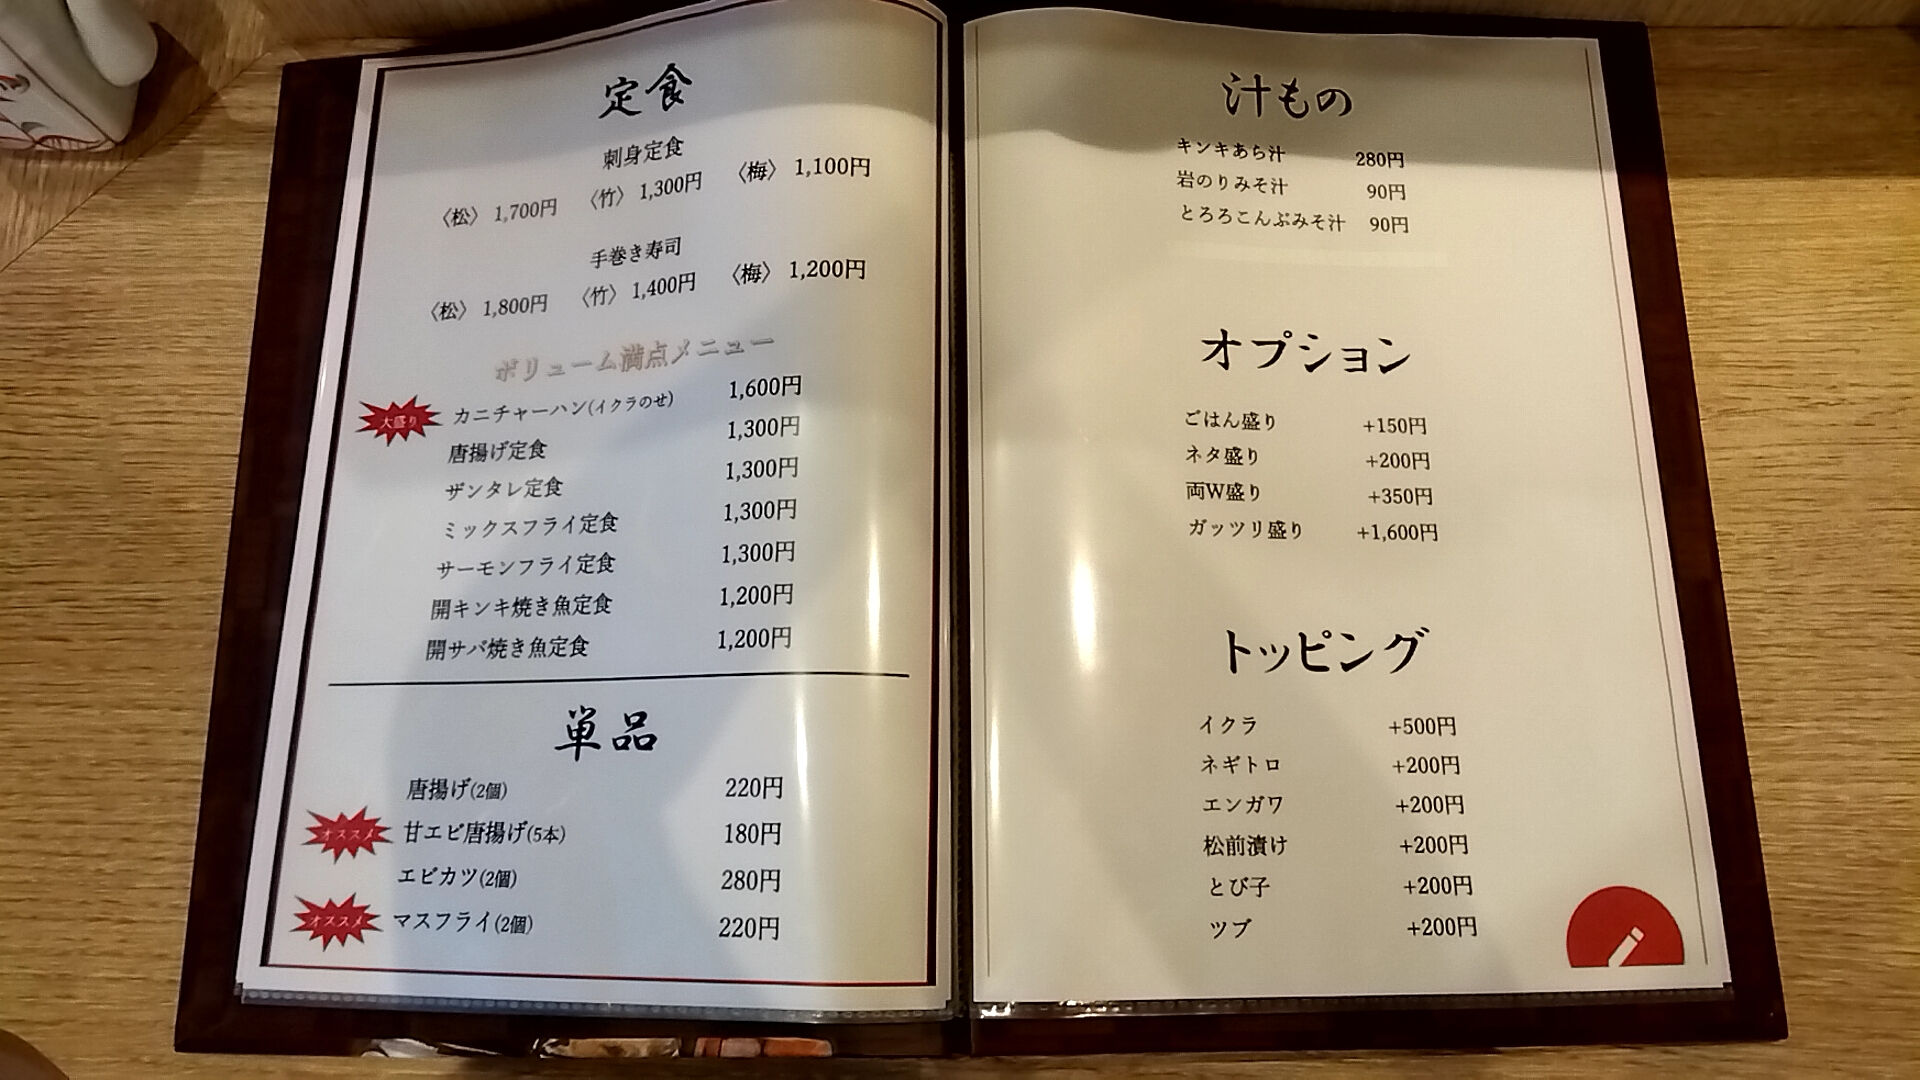 定食
刺身定食
〈松〉 1,700円 〈竹〉 1,300円 〈梅〉 1,100円
手巻き寿司
〈松〉 1,800円 〈竹〉 1,400円 〈梅〉 1,200円
ボリューム満点メニュー
大盛り カニチャーハン(イクラのせ) 1,600円
唐揚げ定食 1,300円
ザンタレ定食 1,300円
ミックスフライ定食 1,300円
サーモンフライ定食 1,300円
開キンキ焼き魚定食 1,200円
開サバ焼き魚定食 1,200円
単品
唐揚げ(2個) 220円
オススメ 甘エビ唐揚げ(5本) 180円
エビカツ(2個) 280円
オススメ マスフライ(2個) 220円
汁もの
キンキあら汁 280円
岩のりみそ汁 90円
とろろこんぶみそ汁 90円
オプション
ごはん盛り +150円
ネタ盛り +200円
両W盛り +350円
ガッツリ盛り +1,600円
トッピング
イクラ +500円
ネギトロ +200円
エンガワ +200円
松前漬け +200円
とび子 +200円
ツブ +200円